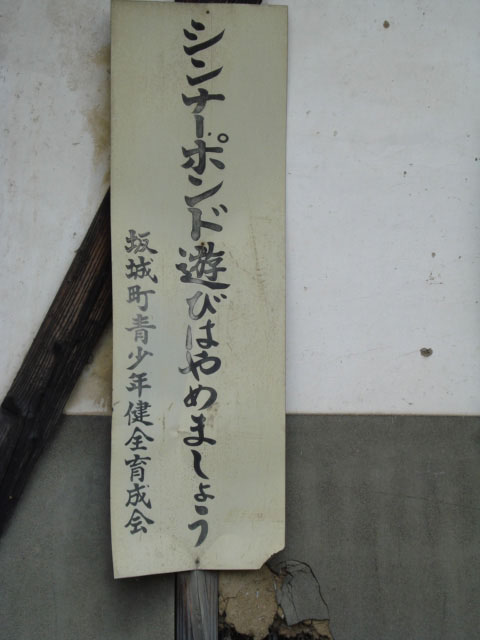 シンナーポンド遊びはやめましょう
坂城町青少年健全育成会